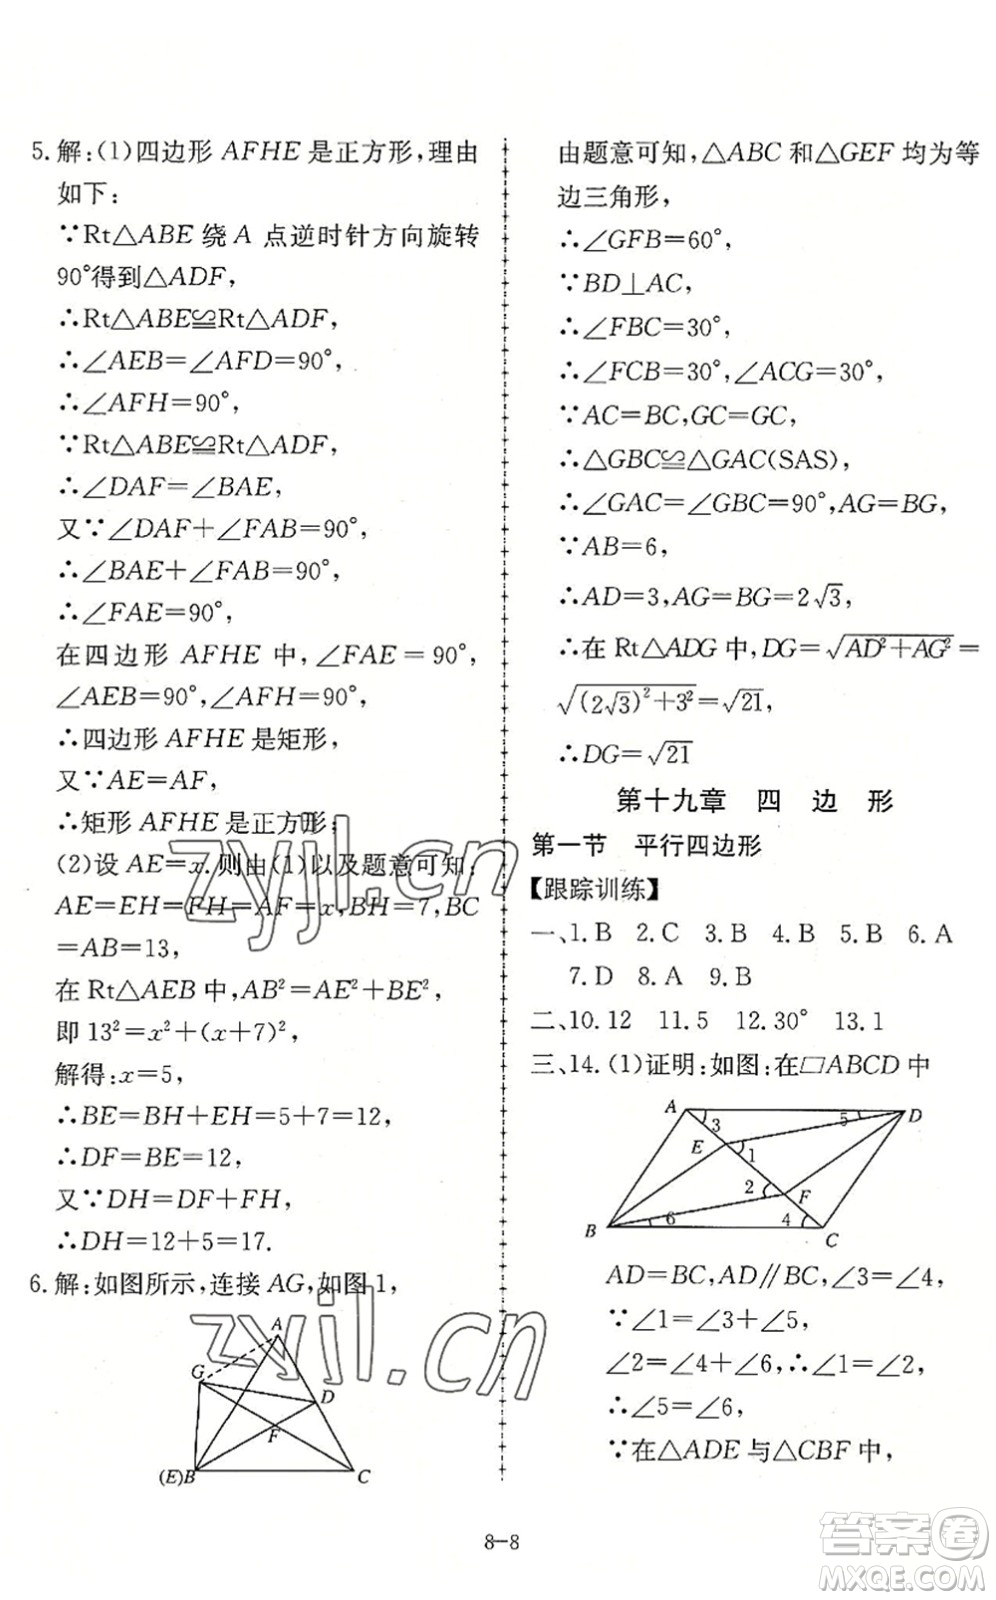 5. 解:(1)四边形 AFHE 是正方形,理由
如下:
∵Rt△ABE 绕 A 点逆时针方向旋转
90°得到△ADF,
∴Rt△ABE≌Rt△ADF,
∴∠AEB=∠AFD=90°,
∴∠AFH=90°,
∵Rt△ABE≌Rt△ADF,
∴∠DAF=∠BAE,
又∵∠DAF+∠FAB=90°,
∴∠BAE+∠FAB=90°,
∴∠FAE=90°,
在四边形 AFHE 中,∠FAE=90°,
∠AEB=90°,∠AFH=90°,
∴四边形 AFHE 是矩形,
又∵AE=AF,
∴矩形 AFHE 是正方形;
(2)设 AE=x.则由(1)以及题意可知:
AE=EH=FH=AF=x,BH=7,BC
=AB=13,
在 Rt△AEB 中,AB²=AE²+BE²,
即 13²=x²+(x+7)²,
解得:x=5,
∴BE=BH+EH=5+7=12,
∴DF=BE=12,
又∵DH=DF+FH,
∴DH=12+5=17.
6. 解:如图所示,连接 AG,如图 1,
A
G
D
F
(E)B
C
由题意可知,△ABC 和△GEF 均为等
边三角形,
∴∠GFB=60°,
∵BD⊥AC,
∴∠FBC=30°,
∴∠FCB=30°,∠ACG=30°,
∵AC=BC,GC=GC,
∴△GBC≌△GAC(SAS),
∴∠GAC=∠GBC=90°,AG=BG,
∵AB=6,
∴AD=3,AG=BG=2√3,
∴在 Rt△ADG 中,DG=√(AD²+AG²)=
√((2√3)²+3²)=√21,
∴DG=√21
第十九章 四 边 形
第一节 平行四边形
【跟踪训练】
一、1.B 2.C 3.B 4.B 5.B 6.A
7.D 8.A 9.B
二、10.12 11.5 12.30° 13.1
三、14.(1)证明:如图:在▱ABCD 中
A
3
5
D
E
1
2
F
B
6
4
C
AD=BC,AD∥BC,∠3=∠4,
∵∠1=∠3+∠5,
∠2=∠4+∠6,∴∠1=∠2,
∴∠5=∠6,
∵在△ADE 与△CBF 中,
8-8
zyjl.cn
zyjl.cn
答案圈
MXQE.COM